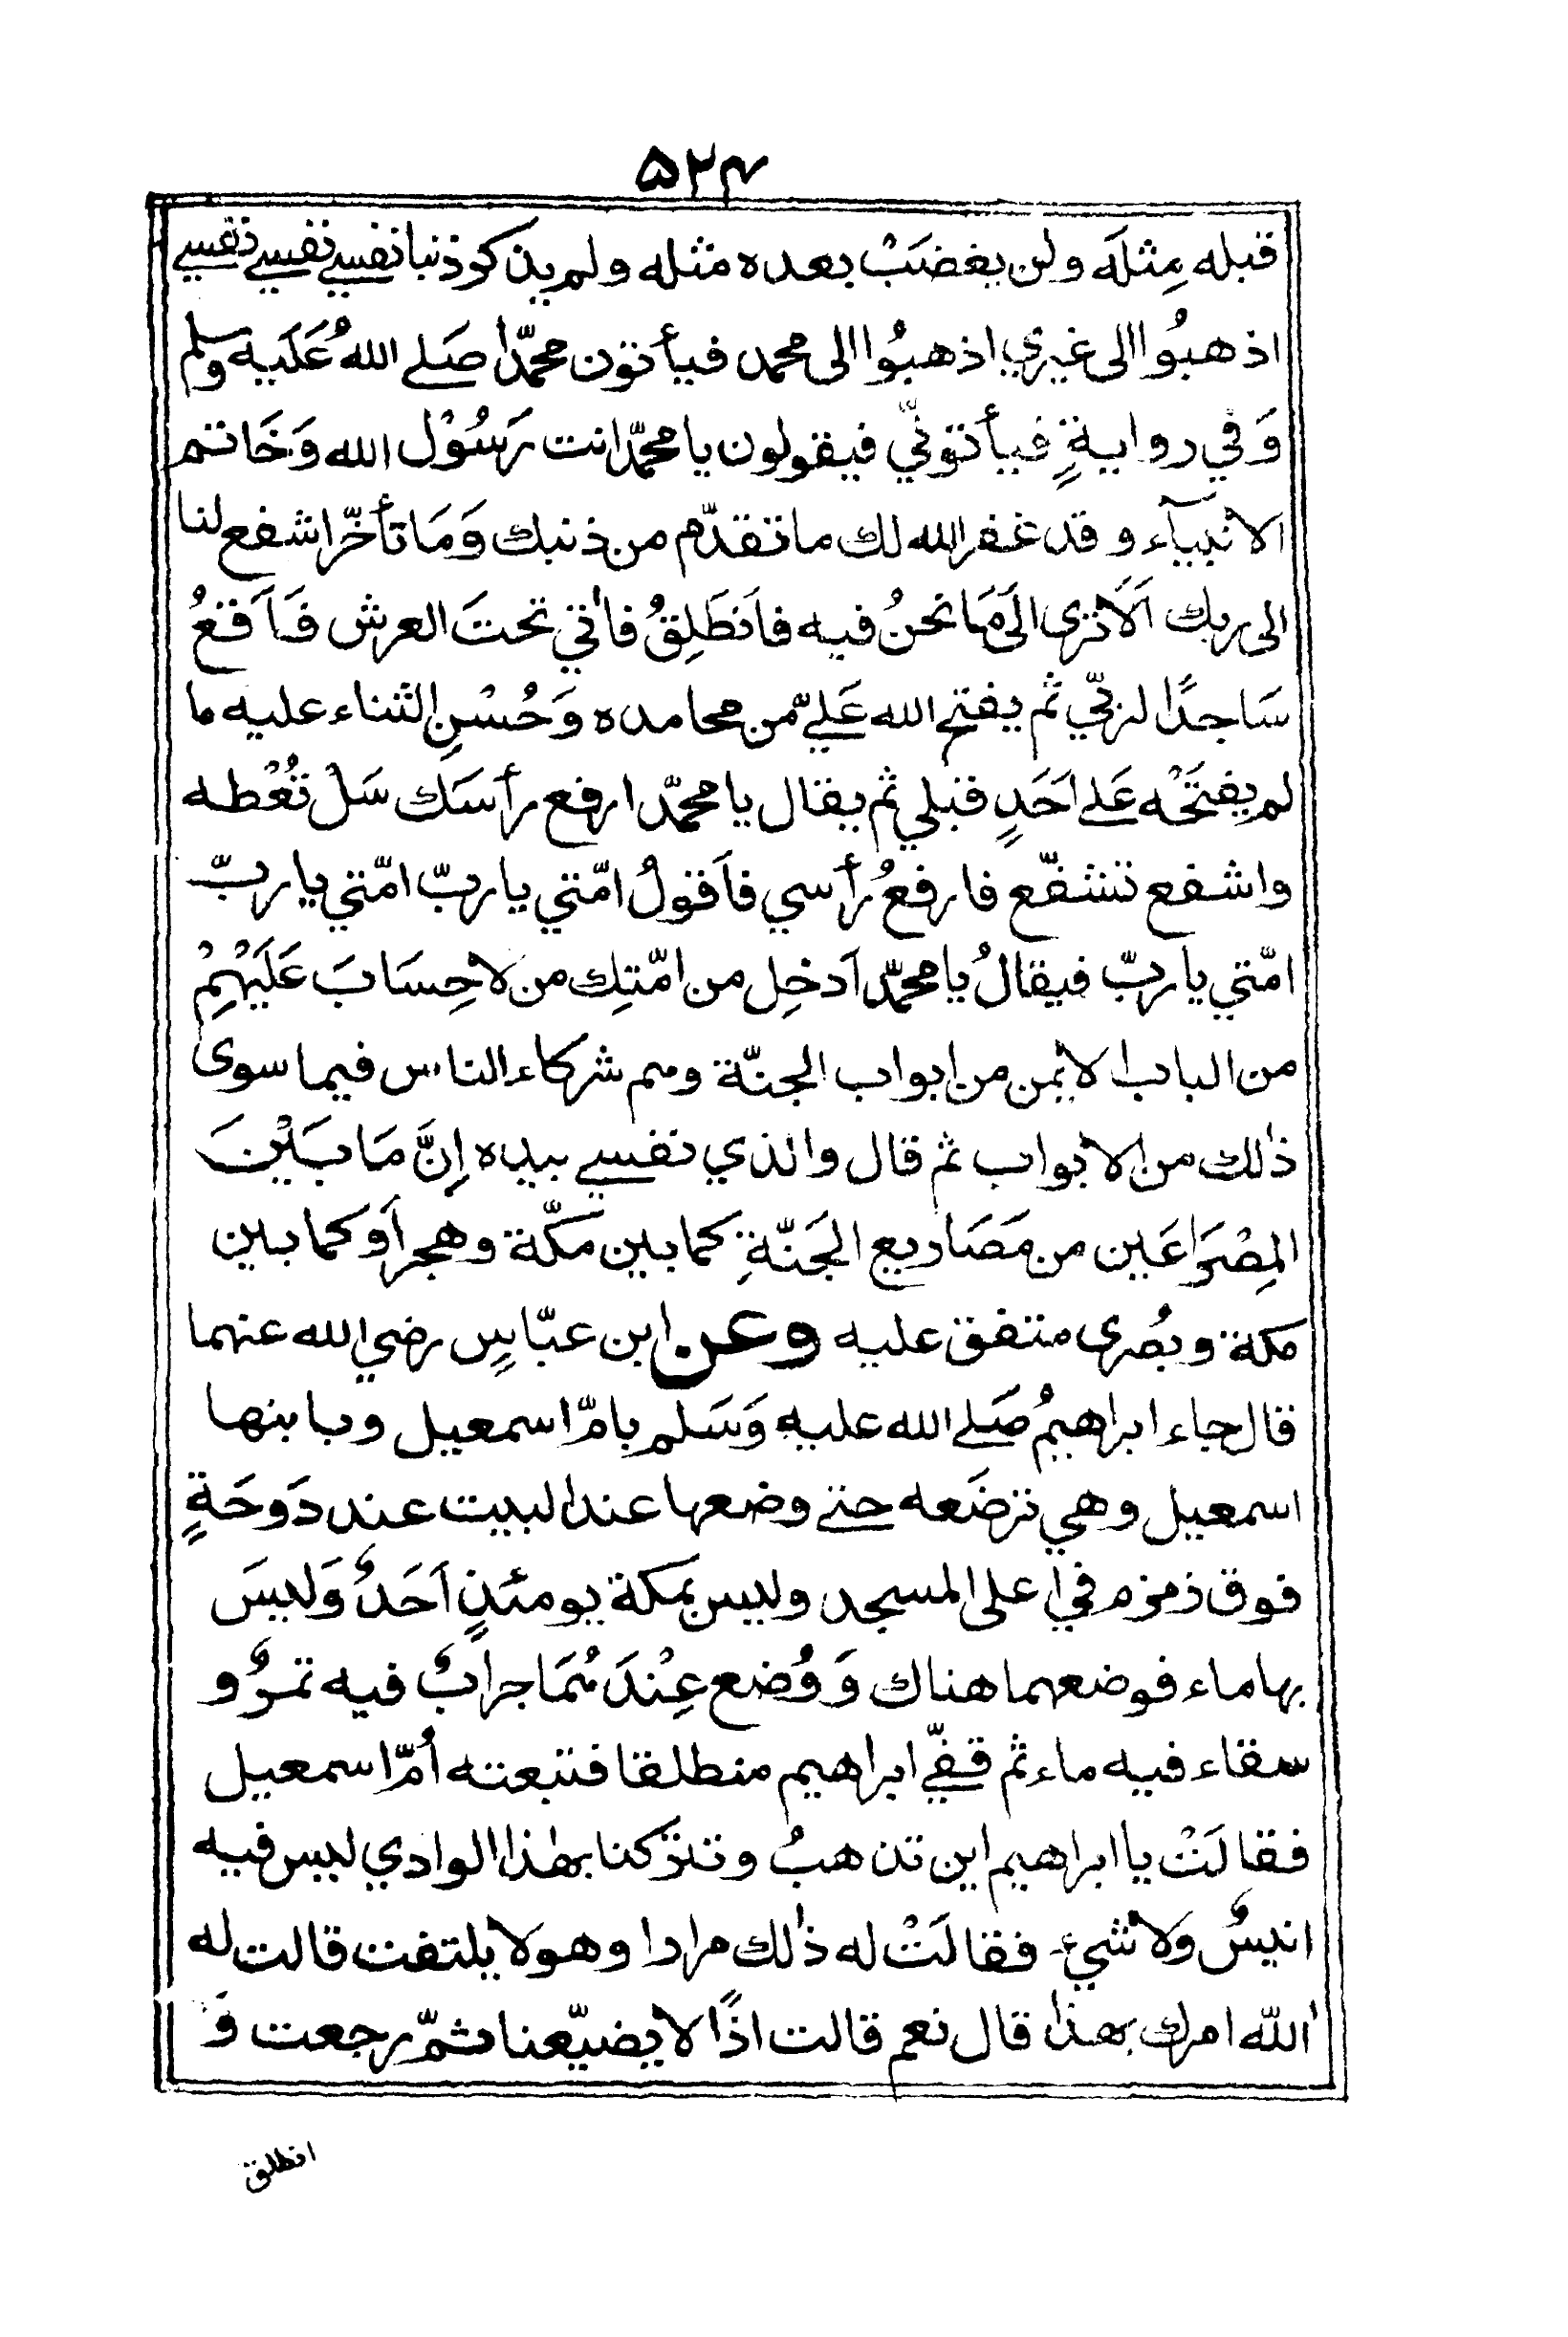 ۵۲۴
قبله مِثلَه ولن يغضَبْ بعده مثله ولم يذكر ذنبا نفسي نفسي نفسي
اذهبُوا الى غيري اذهبُوا الى محمد فيأتون محمّدًا صَلے اللهُ عَلَيه وسلم
وَفي روايةٍ فيأتونّي فيقولون يا محمّد انت رَسُوْل الله وَخَاتم
الانبيآء وقد غفر الله لك ما تقدّم من ذنبك وَمَا تأخّر اشفع لنا
الى ربك اَلَا ترى الَى مَا نحنُ فيه فاَنطَلِقُ فاٰتي تحتَ العرش فَاَقعُ
سَاجدًا لربّي ثم يفتح الله عَليَّ من محامده وَحُسْنِ الثناء عليه ما
لم يفتَحْه عَلے اَحَدٍ قبلي ثم يقال يا محمّد ارفع رأسَك سَلْ تُعْطه
واشفع تشفّع فارفعُ رأسي فاَقولُ امّتي يا ربّ امّتي يا ربّ
امّتي يا ربّ فيقالُ يا محمّد اَدخِل من امّتِك من لا حِسَابَ عَلَيْهِمْ
من الباب الايمن من ابواب الجنّة وهم شركاء الناس فيما سوى
ذٰلك من الابواب ثم قال والذي نفسي بيده اِنَّ مَا بَيْنَ
المِصْرَاعَين من مَصَاريع الجَنّةِ كما بين مكّة وهجر اَو كما بين
مكة وبُصرى متفق عليه وعن ابن عبّاسٍ رضي الله عنهما
قال جاء ابراهيمُ صَلے الله عليه وَسَلم بامّ اسمعيل وبابنها
اسمعيل وهي ترضَعه حتے وضعها عند البيت عند دَوحَةٍ
فوق زمزم في اعلى المسجد وليس بمكة يومئذٍ اَحَدٌ وَليسَ
بها ماء فوضعهما هناك وَوُضع عِنْدَهُمَا جرابٌ فيه تمرٌ و
سقاء فيه ماء ثم قفّے ابراهيم منطلقا فتبعته اُمّ اسمعيل
فقالَتْ يا ابراهيم اين تذهبُ وتترُكنا بهٰذا الوادي ليس فيه
انيسٌ ولا شيء فقالَتْ له ذٰلك مرارا وهو لا يلتفت قالت له
اٰلله امرك بهذا قال نعم قالت اذًا لا يضيّعنا ثمّ رجعت وَ
انطلق